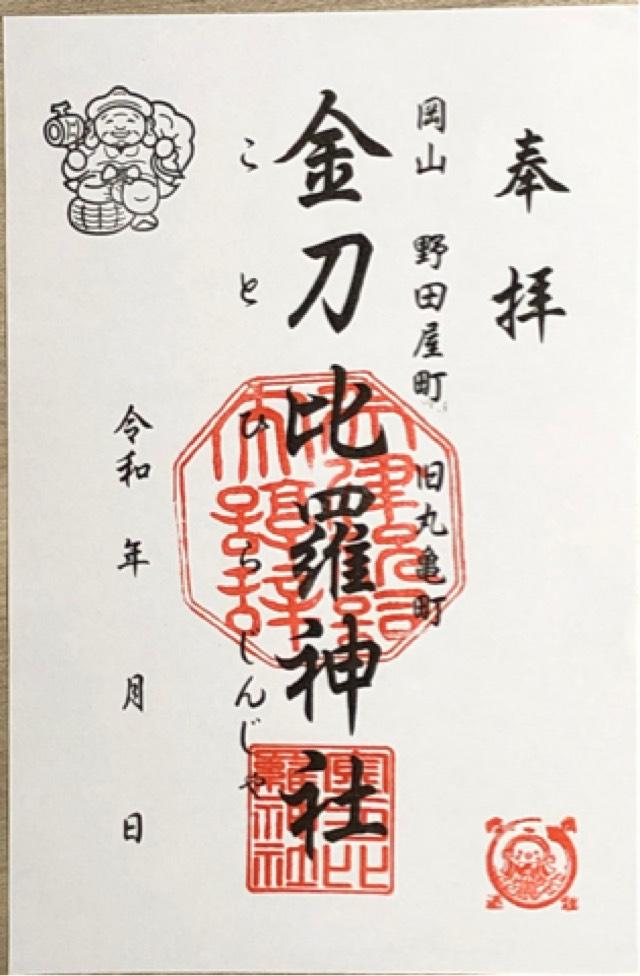 奉拝
岡山 野田屋町 旧丸亀町
金刀比羅神社
ことひらじんじゃ
令和 年 月 日